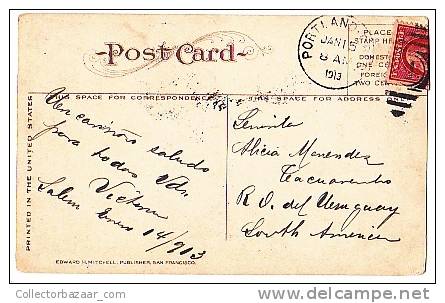 Post Card
PORTLAND
JAN 15
8 AM
1913
PLACE
STAMP HE
DOMES
ONE CE
FOREIG
TWO CE
THIS SPACE FOR CORRESPONDENCE
THIS SPACE FOR ADDRESS ONLY
Un cariñoso saludo
para todos Vds.
Victor
Salem Enero 14/913
Señorita
Alicia Menendez
Tacuarembo
R. O. del Uruguay
South America
PRINTED IN THE UNITED STATES
EDWARD H. MITCHELL, PUBLISHER, SAN FRANCISCO.
Collectorbazaar__com
delcampe.net